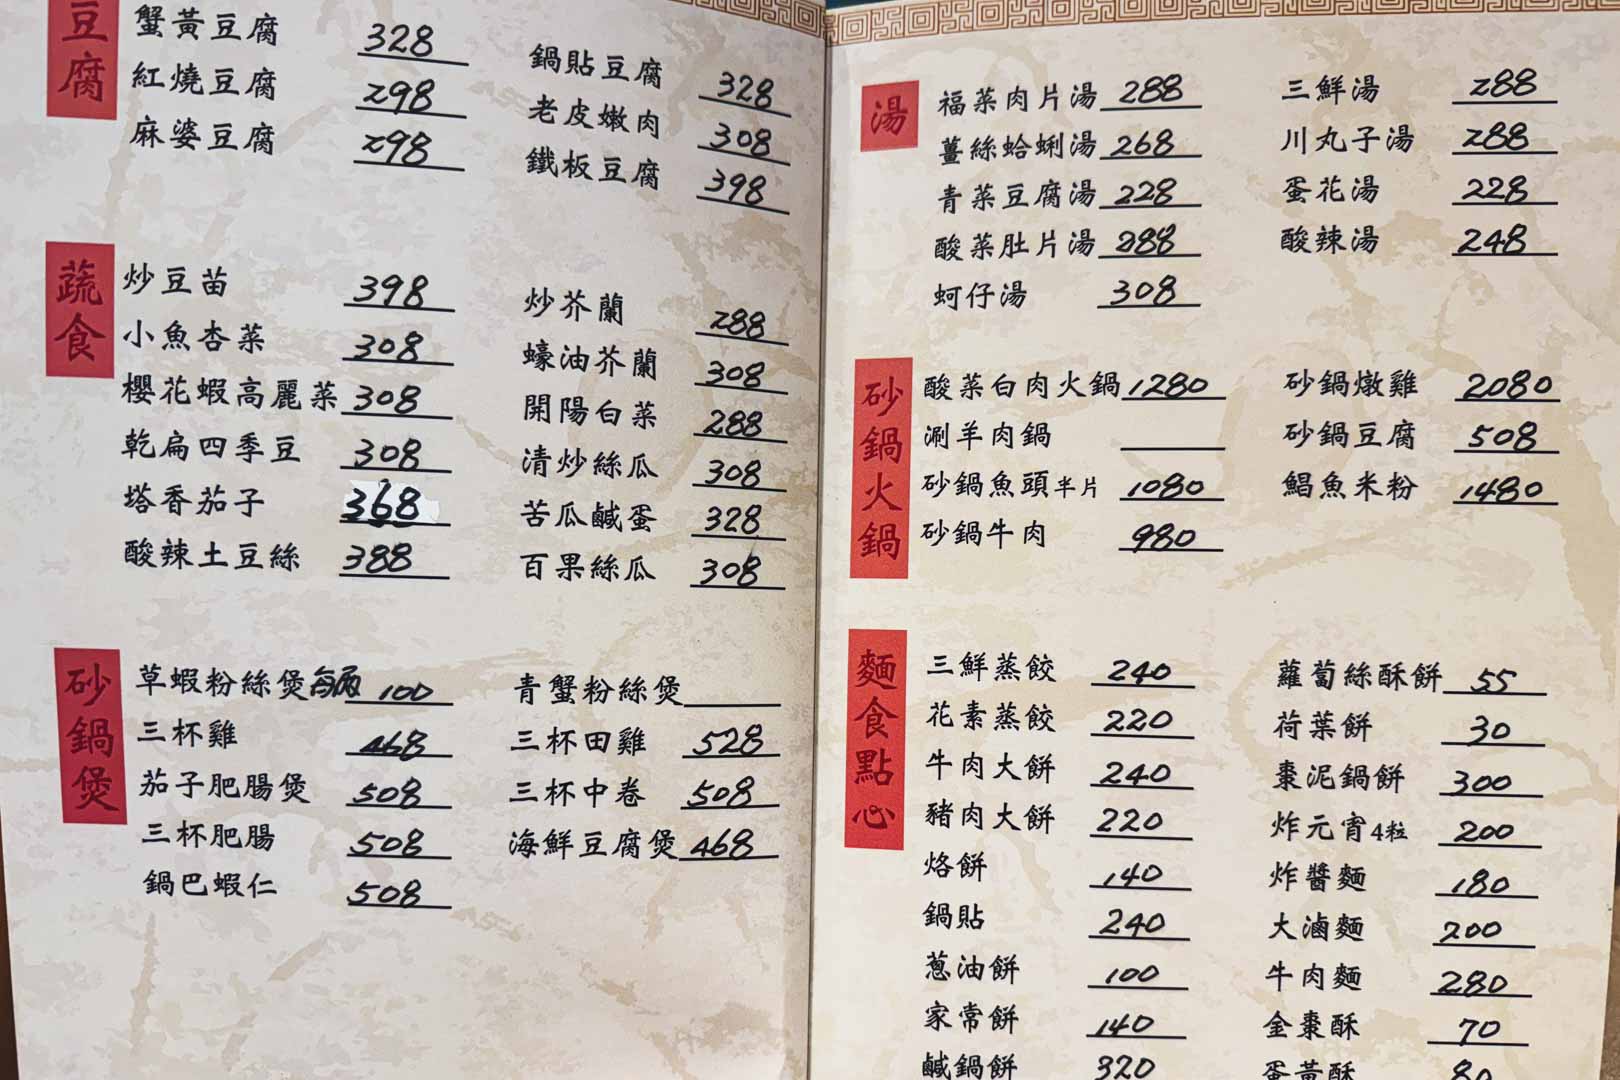 豆腐
蟹黃豆腐 328
紅燒豆腐 298
麻婆豆腐 298
鍋貼豆腐 328
老皮嫩肉 308
鐵板豆腐 398
蔬食
炒豆苗 398
小魚杏菜 308
櫻花蝦高麗菜 308
乾扁四季豆 308
塔香茄子 368
酸辣土豆絲 388
炒芥蘭 288
蠔油芥蘭 308
開陽白菜 288
清炒絲瓜 308
苦瓜鹹蛋 328
百果絲瓜 308
砂鍋煲
草蝦粉絲煲每兩 100
三杯雞 468
茄子肥腸煲 508
三杯肥腸 508
鍋巴蝦仁 508
青蟹粉絲煲
三杯田雞 528
三杯中卷 508
海鮮豆腐煲 468
湯
福菜肉片湯 288
薑絲蛤蜊湯 268
青菜豆腐湯 228
酸菜肚片湯 288
蚵仔湯 308
三鮮湯 288
川丸子湯 288
蛋花湯 228
酸辣湯 248
砂鍋火鍋
酸菜白肉火鍋 1280
涮羊肉鍋
砂鍋魚頭半片 1080
砂鍋牛肉 980
砂鍋燉雞 2080
砂鍋豆腐 508
鯧魚米粉 1480
麵食點心
三鮮蒸餃 240
花素蒸餃 220
牛肉大餅 240
豬肉大餅 220
烙餅 140
鍋貼 240
蔥油餅 100
家常餅 140
鹹鍋餅 320
蘿蔔絲酥餅 55
荷葉餅 30
棗泥鍋餅 300
炸元宵4粒 200
炸醬麵 180
大滷麵 200
牛肉麵 280
金棗酥 70
蛋黃酥 80